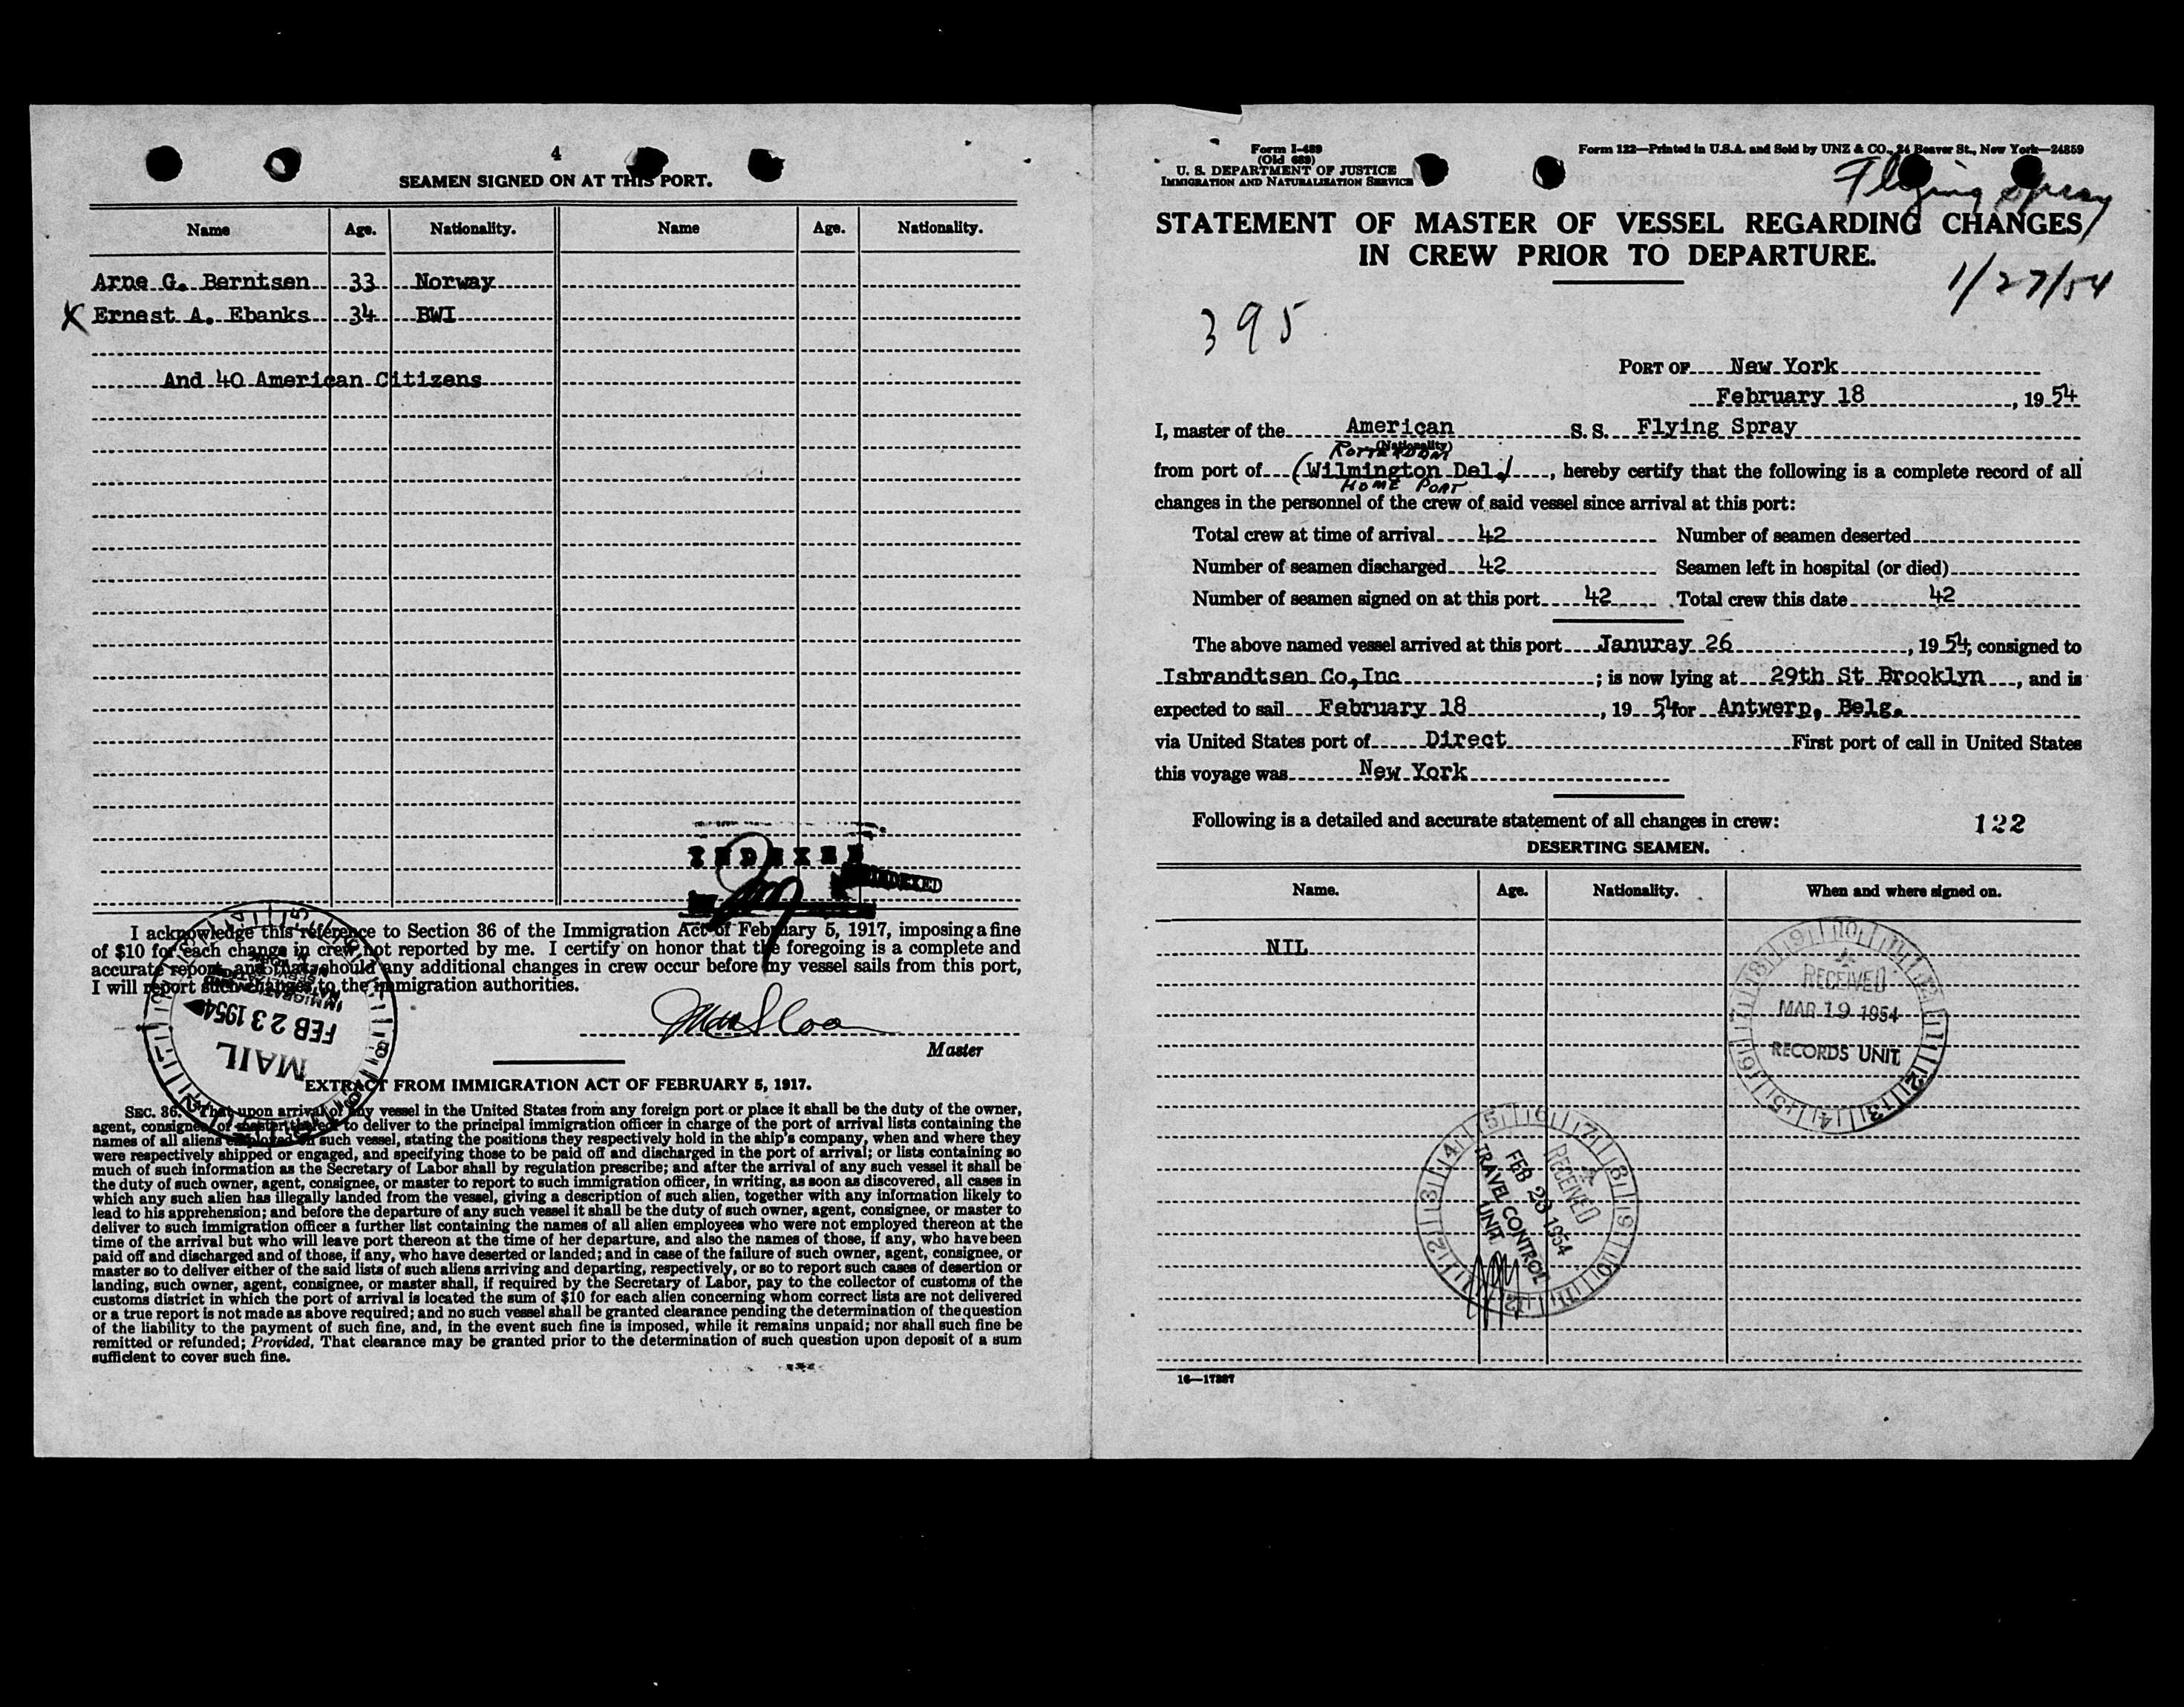 4
SEAMEN SIGNED ON AT THIS PORT.
Name Age. Nationality. Name Age. Nationality.
Arne G. Berntsen 33 Norway
X Ernest A. Ebanks 34 BWI
And 40 American Citizens
INDEXED
INDEXED
I acknowledge this reference to Section 36 of the Immigration Act of February 5, 1917, imposing a fine
of $10 for each change in crew not reported by me. I certify on honor that the foregoing is a complete and
accurate report, and that should any additional changes in crew occur before my vessel sails from this port,
I will report such changes to the immigration authorities.
FEB 23 1954
MAIL
Master
EXTRACT FROM IMMIGRATION ACT OF FEBRUARY 5, 1917.
SEC. 36. That upon arrival of any vessel in the United States from any foreign port or place it shall be the duty of the owner,
agent, consignee, or master thereof to deliver to the principal immigration officer in charge of the port of arrival lists containing the
names of all aliens employed on such vessel, stating the positions they respectively hold in the ship's company, when and where they
were respectively shipped or engaged, and specifying those to be paid off and discharged in the port of arrival; or lists containing so
much of such information as the Secretary of Labor shall by regulation prescribe; and after the arrival of any such vessel it shall be
the duty of such owner, agent, consignee, or master to report to such immigration officer, in writing, as soon as discovered, all cases in
which any such alien has illegally landed from the vessel, giving a description of such alien, together with any information likely to
lead to his apprehension; and before the departure of any such vessel it shall be the duty of such owner, agent, consignee, or master to
deliver to such immigration officer a further list containing the names of all alien employees who were not employed thereon at the
time of the arrival but who will leave port thereon at the time of her departure, and also the names of those, if any, who have been
paid off and discharged and of those, if any, who have deserted or landed; and in case of the failure of such owner, agent, consignee, or
master so to deliver either of the said lists of such aliens arriving and departing, respectively, or so to report such cases of desertion or
landing, such owner, agent, consignee, or master shall, if required by the Secretary of Labor, pay to the collector of customs of the
customs district in which the port of arrival is located the sum of $10 for each alien concerning whom correct lists are not delivered
or a true report is not made as above required; and no such vessel shall be granted clearance pending the determination of the question
of the liability to the payment of such fine, and, in the event such fine is imposed, while it remains unpaid; nor shall such fine be
remitted or refunded; Provided, That clearance may be granted prior to the determination of such question upon deposit of a sum
sufficient to cover such fine.
Form I-489
(Old 689)
U. S. DEPARTMENT OF JUSTICE
IMMIGRATION AND NATURALIZATION SERVICE
Form 122—Printed in U.S.A. and Sold by UNZ & CO., 24 Beaver St., New York—24859
Flying Spray
STATEMENT OF MASTER OF VESSEL REGARDING CHANGES
IN CREW PRIOR TO DEPARTURE.
1/27/54
395
PORT OF New York
February 18, 1954
I, master of the American S. S. Flying Spray
(Nationality)
ROTTERDAM
from port of (Wilmington Del.), hereby certify that the following is a complete record of all
HOME PORT
changes in the personnel of the crew of said vessel since arrival at this port:
Total crew at time of arrival 42 Number of seamen deserted
Number of seamen discharged 42 Seamen left in hospital (or died)
Number of seamen signed on at this port 42 Total crew this date 42
The above named vessel arrived at this port Januray 26, 1954, consigned to
Isbrandtsen Co,Inc; is now lying at 29th St Brooklyn, and is
expected to sail February 18, 1954 for Antwerp, Belg.
via United States port of Direct First port of call in United States
this voyage was New York
Following is a detailed and accurate statement of all changes in crew: 122
DESERTING SEAMEN.
Name. Age. Nationality. When and where signed on.
NIL
RECEIVED
MAR 19 1954
RECORDS UNIT
RECEIVED
FEB 23 1954
TRAVEL CONTROL
UNIT
16—17387